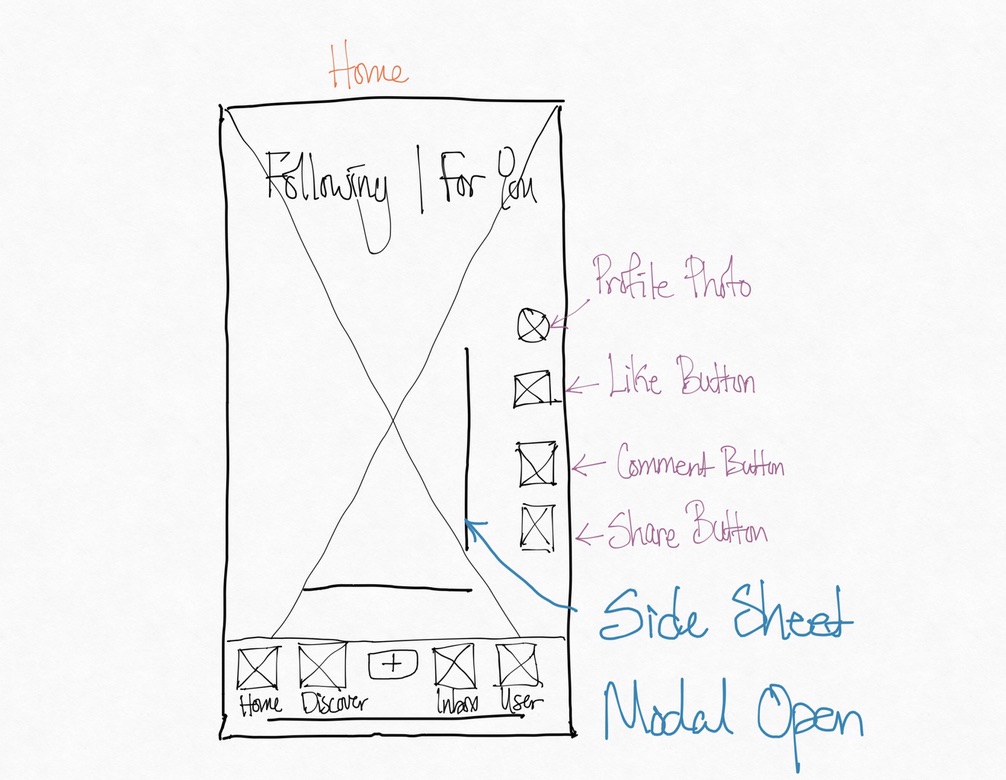 Home
Following | For You
Profile Photo
Like Button
Comment Button
Share Button
Side Sheet
Modal Open
+
Home Discover Inbox User